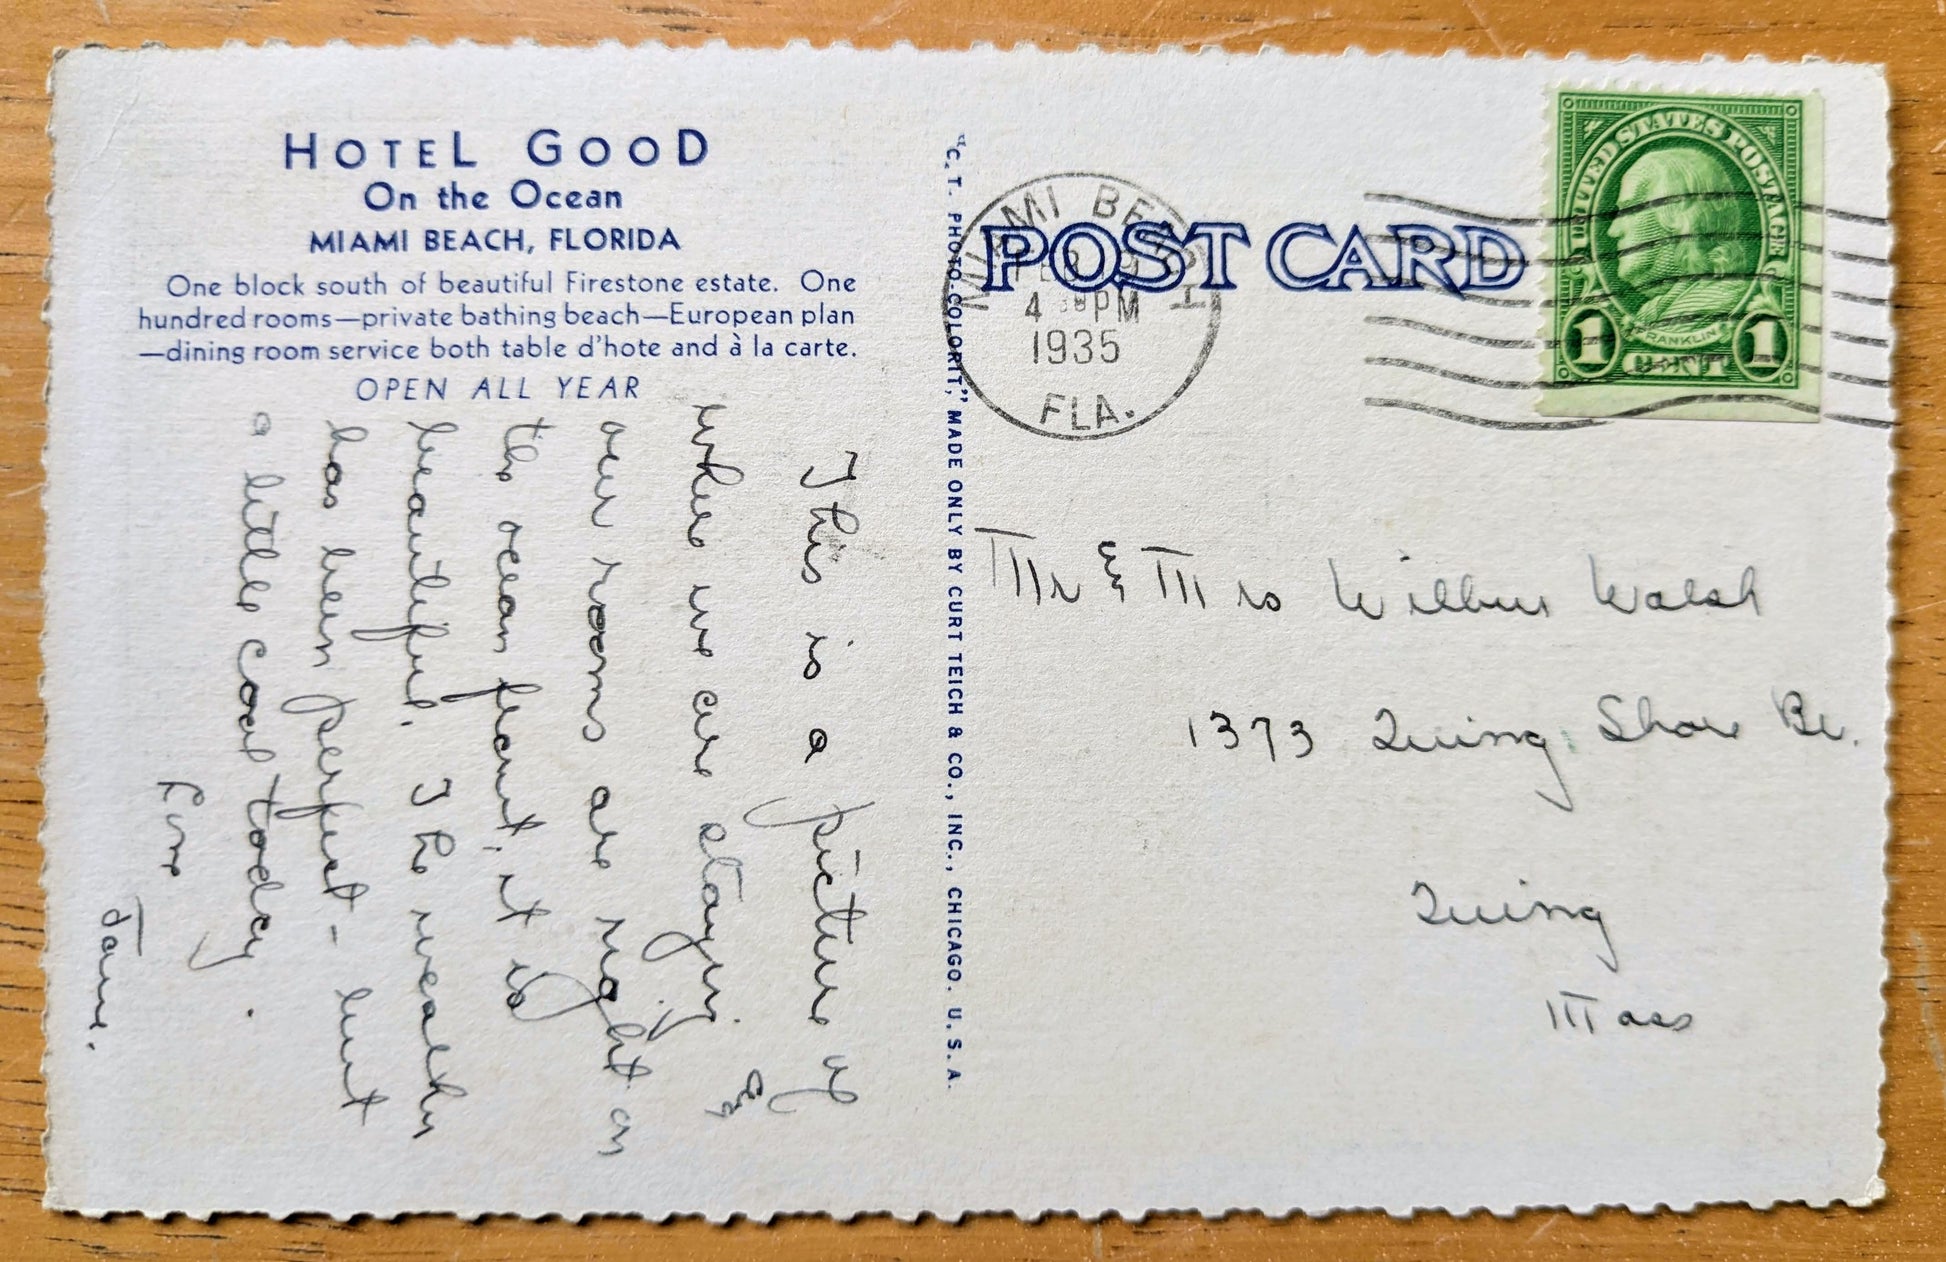 HOTEL GOOD
On the Ocean
MIAMI BEACH, FLORIDA
One block south of beautiful Firestone estate. One
hundred rooms—private bathing beach—European plan
—dining room service both table d'hote and à la carte.
OPEN ALL YEAR
This is a picture of
where we are staying. &
our rooms are right on
the ocean front, it is
beautiful. The weather
has been perfect - but
a little cool today.
Love
Jane.
"C. T. PHOTO-COLORIT," MADE ONLY BY CURT TEICH & CO., INC., CHICAGO. U. S. A.
POST CARD
MIAMI BEACH
FEB
4 30 PM
1935
FLA.
UNITED STATES POSTAGE
FRANKLIN
1 CENT 1
Mr & Mrs Wilbur Walsh
1373 Quincy Shore Bv.
Quincy
Mass